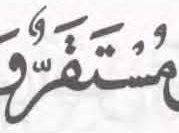 مُسْتَقَرٌّ وَ